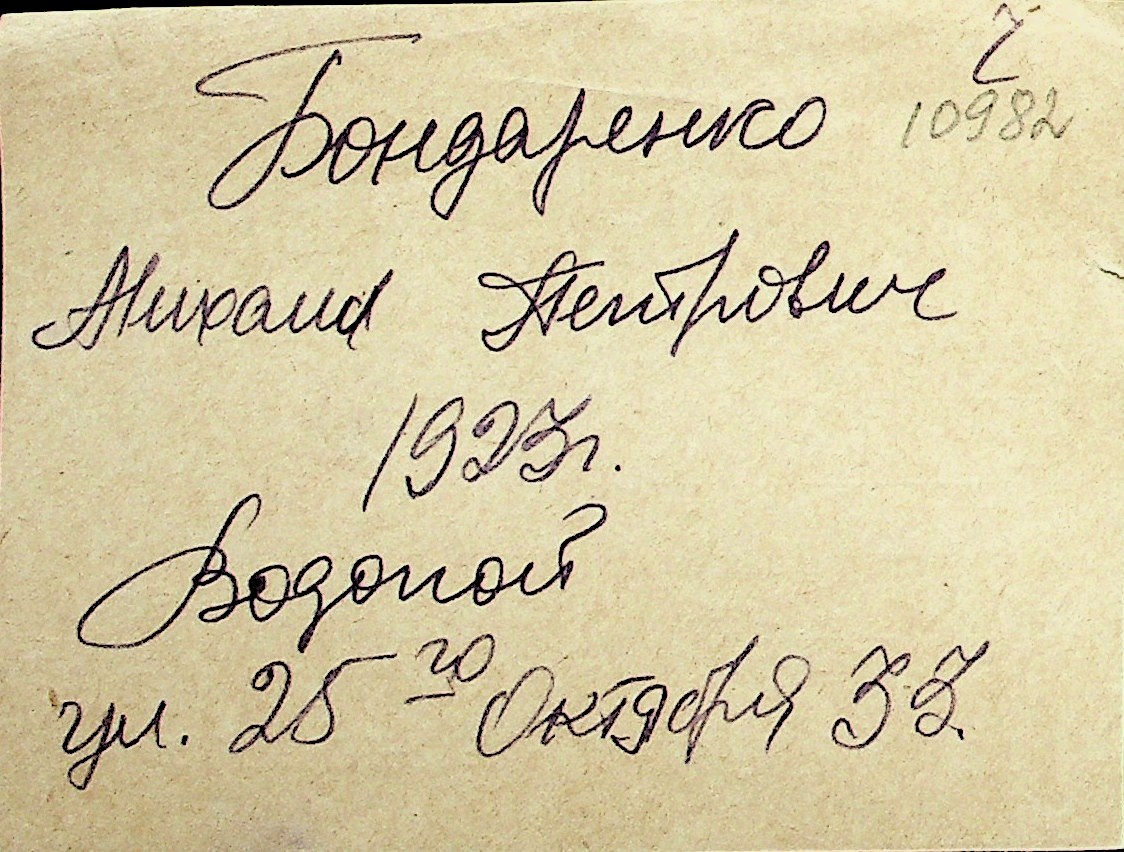 Бондаренко
10982
Михаил Петрович
1923г.
Водопой
ул. 25го Октября 33.